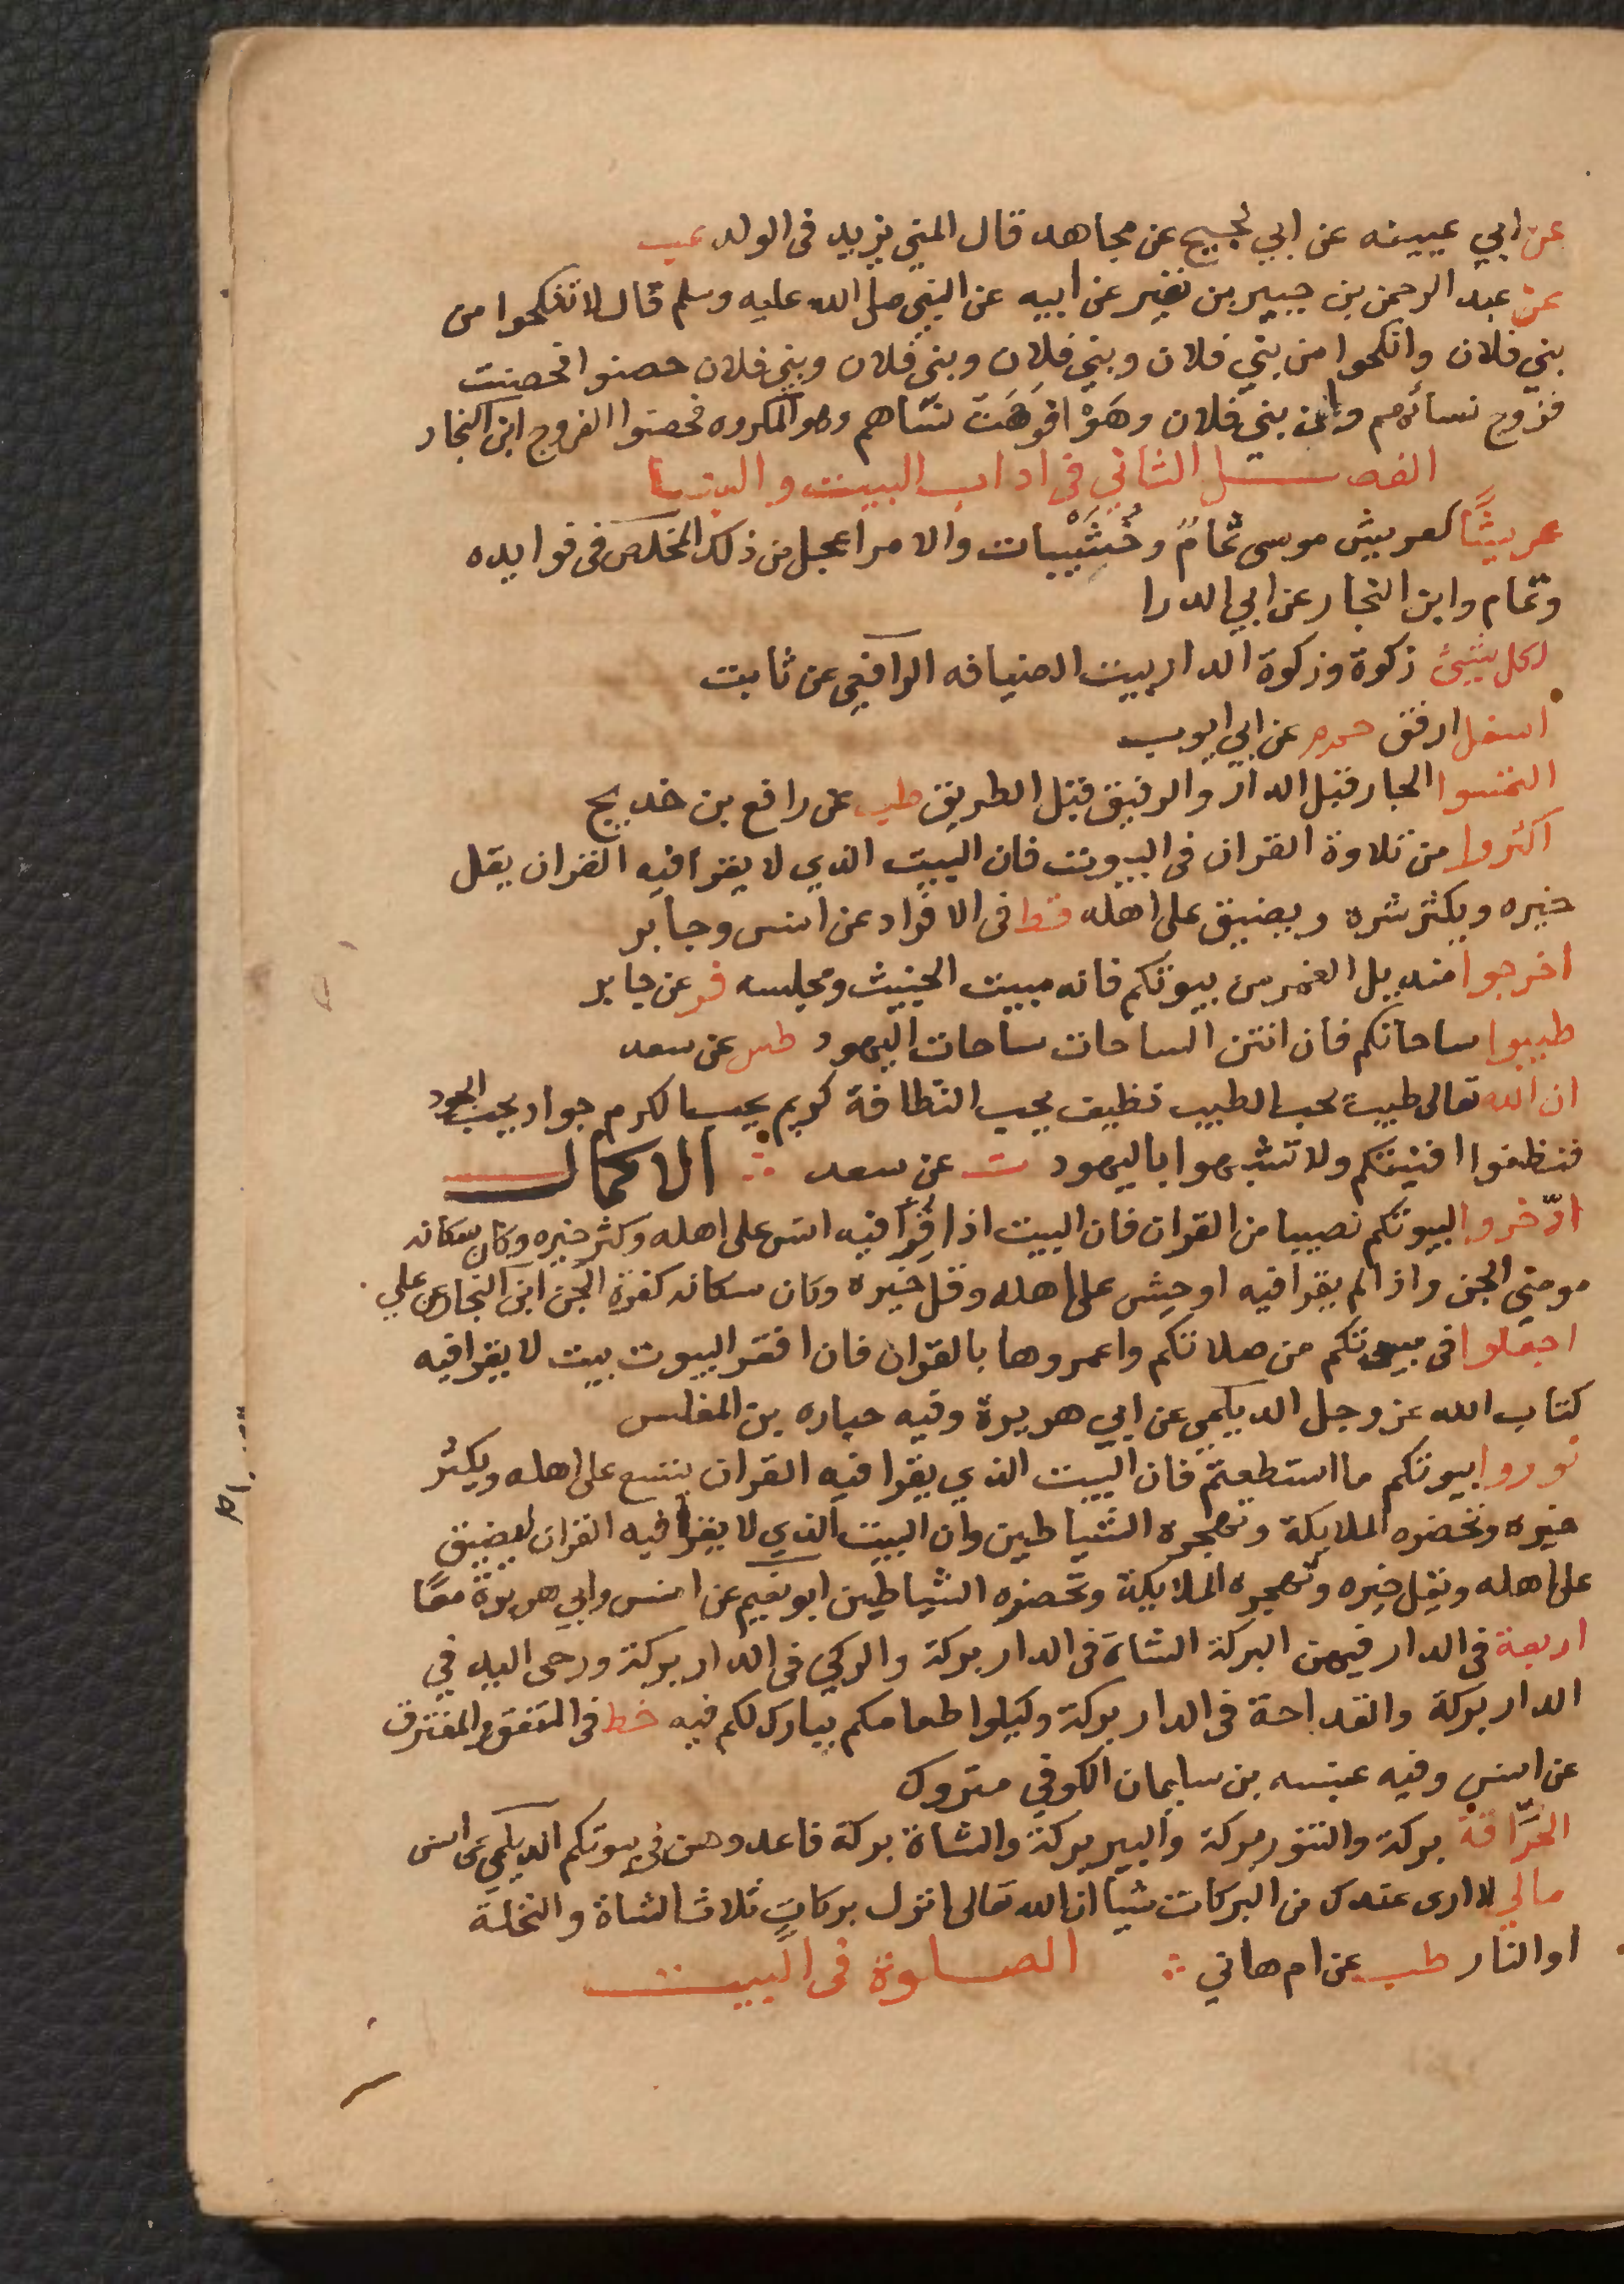 عن ابي عيينه عن ابي نجيح عن مجاهد قال المني يزيد فى الولد عب
عن عبد الرحمن بن جبير بن نفير عن ابيه عن النبي صلى الله عليه وسلم قال لا تنكحوا من
بني فلان وانكحوا من بني فلان وبني فلان وبني فلان وبني فلان حصنوا فحصنت
فزوج نسائهم وان بني فلان وهوا فوهت نساهم وهو المكروه فحصنوا الفروج ابن النجار
الفصل الثاني فى اداب البيت والبنا
عريشًا كعريش موسى ثمامٌ وخُشَيْبات والامر اعجل من ذلك المخلص فى فوايده
وتمام وابن النجار عن ابي الدردا
لكل شيئ زكوة وزكوة الدار بيت الضيافه الرافعي عن ثابت
اسفل ارفق حم م عن ابي ايوب
التمسوا الجار قبل الدار والرفيق قبل الطريق طب عن رافع بن خديج
اكثروا من تلاوة القران فى البيوت فان البيت الذي لا يقرا فيه القران يقل
خيره ويكثر شره ويضيق على اهله قط فى الافراد عن انس وجابر
اخرجوا منديل الغمر من بيوتكم فانه مبيت الخبيث ومجلسه فر عن جابر
طيبوا ساحاتكم فان انتن الساحات ساحات اليهود طس عن سعد
ان الله تعالى طيب يحب الطيب نظيف يحب النظافة كريم يحب الكرم جواد يحب الجود
فنظفوا افنيتكم ولا تشبهوا باليهود ت عن سعد ∴ الاكمال
ادّخروا لبيوتكم نصيبا من القران فان البيت اذا قُرأ فيه انس على اهله وكثر خيره وكان سكانه
مومني الجن واذا لم يقرا فيه اوحش على اهله وقل خيره وكان سكانه كفرة الجن ابن النجار عن علي
اجعلوا فى بيوتكم من صلاتكم واعمروها بالقران فان افقر البيوت بيت لا يقرا فيه
كتاب الله عز وجل الديلمي عن ابي هريرة وفيه جباره بن المغلس
نوروا بيوتكم ما استطعتم فان البيت الذي يقرا فيه القران يتسع على اهله ويكثر
خيره وتحضره الملايكة وتهجره الشياطين وان البيت الذي لا يقرا فيه القران يضيق
على اهله ويقل خيره وتهجره الملايكة وتحضره الشياطين ابو نعيم عن انس وابي هريرة معًا
اربعة فى الدار فيهن البركة الشاة فى الدار بركة والركي فى الدار بركة ورحى اليد في
الدار بركة والقداحة فى الدار بركة وكيلوا طعامكم يبارك لكم فيه خط فى المتفق والمفترق
عن انس وفيه عنبسه بن سليمان الكوفي متروك
الحرّاقة بركة والتنور بركة والبير بركة والشاة بركة فاعدوهن في بيوتكم الديلمي عن انس
مالي لا ارى عندك من البركات شيا ان الله تعالى انزل بركات ثلاث الشاة والنخلة
او النار طب عن ام هاني ∴ الصلوة فى البيت